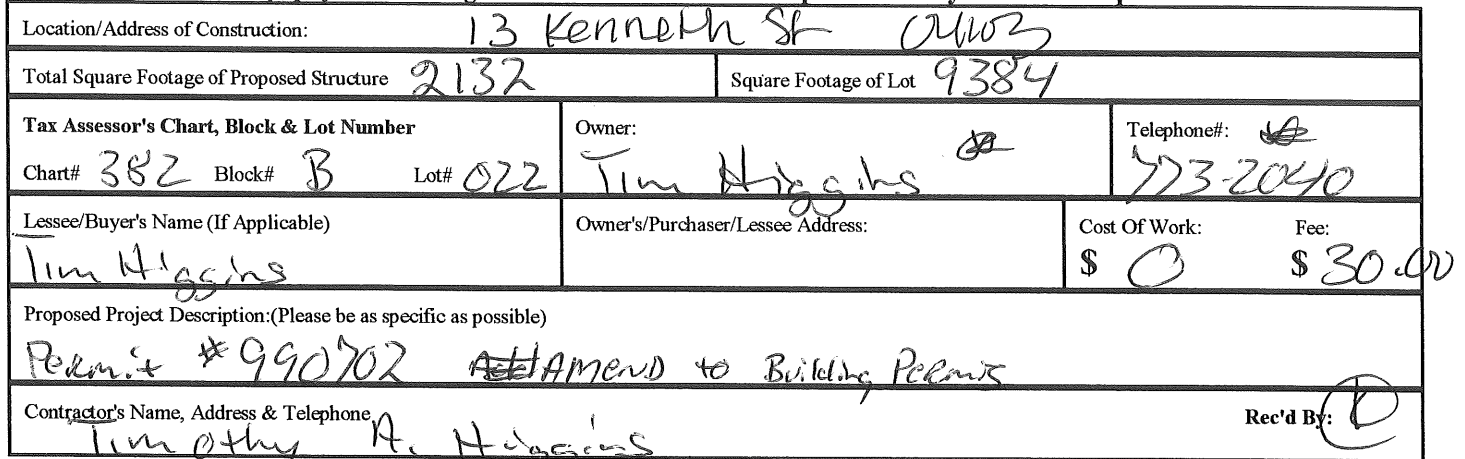 Location/Address of Construction: 13 Kenneth St 04103
Total Square Footage of Proposed Structure 2132 Square Footage of Lot 9384
Tax Assessor's Chart, Block & Lot Number Owner: Telephone#:
Chart# 382 Block# B Lot# 022 Tim Higgins 773-2040
Lessee/Buyer's Name (If Applicable) Owner's/Purchaser/Lessee Address: Cost Of Work: Fee:
Tim Higgins $ 0 $ 30.00
Proposed Project Description:(Please be as specific as possible)
Permit #990702 AMEND to Building Permit
Contractor's Name, Address & Telephone Rec'd By:
Timothy A. Higgins